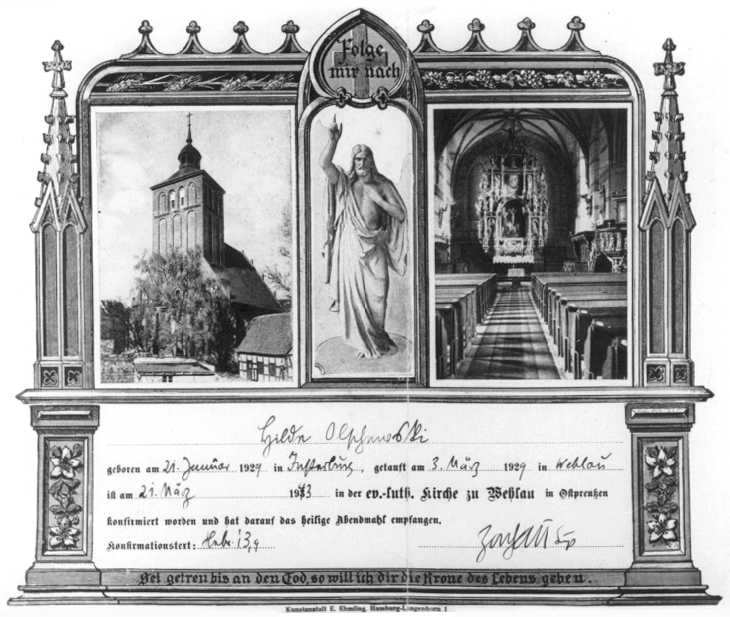 Folge
mir nach
Hilde Olschewski
geboren am 21. Januar 1929 in Insterburg, getauft am 3. März 1929 in Wehlau
ist am 21. März 1943 in der ev.-luth. Kirche zu Wehlau in Ostpreußen
konfirmiert worden und hat darauf das heilige Abendmahl empfangen.
Konfirmationstext: Hebr. 13,9
Sei getreu bis an den Tod, so will ich dir die Krone des Lebens geben.
Kunstanstalt E. Ebmling, Hamburg-Langenhorn 1